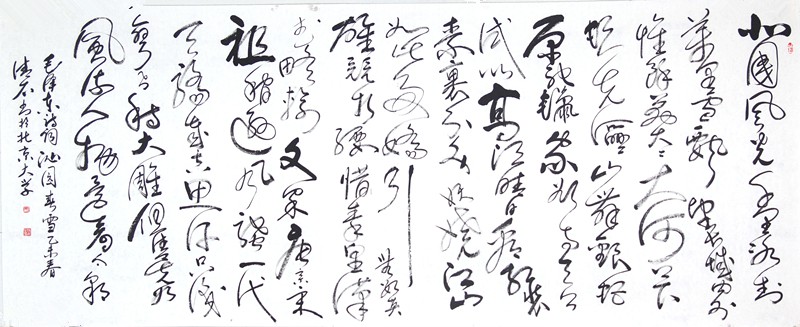 北國風光千里冰封
萬里雪飄望長城內外
惟餘莽莽大河上下
頓失滔滔山舞銀蛇
原馳蠟象欲與天公
試比高須晴日看紅裝
素裹分外妖嬈江山
如此多嬌引無數英
雄競折腰惜秦皇漢
武略輸文采唐宗宋
祖稍遜風騷一代
天驕成吉思汗只識
彎弓射大雕俱往矣數
風流人物還看今朝
毛澤東詩詞沁園春雪乙未春
書於北京大學